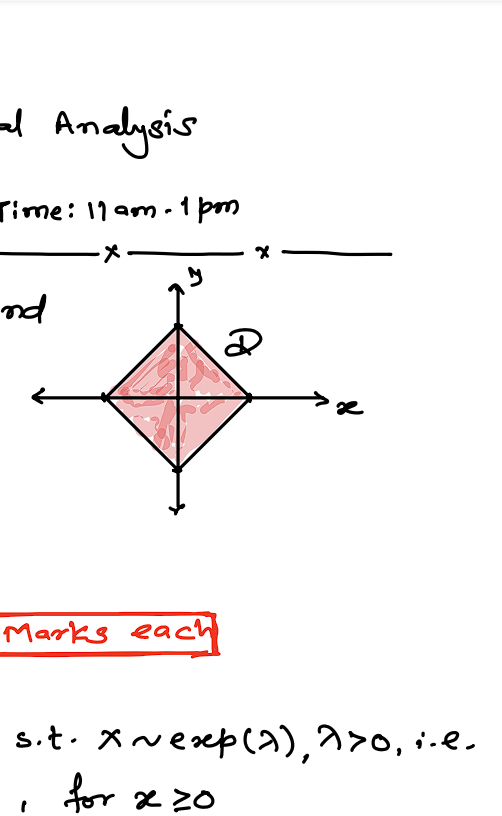 al Analysis
Time: 11 am - 1 pm
x x
y
nd
D
x
Marks each
s.t. X ~ exp(λ), λ>0, i.e.
, for x ≥0